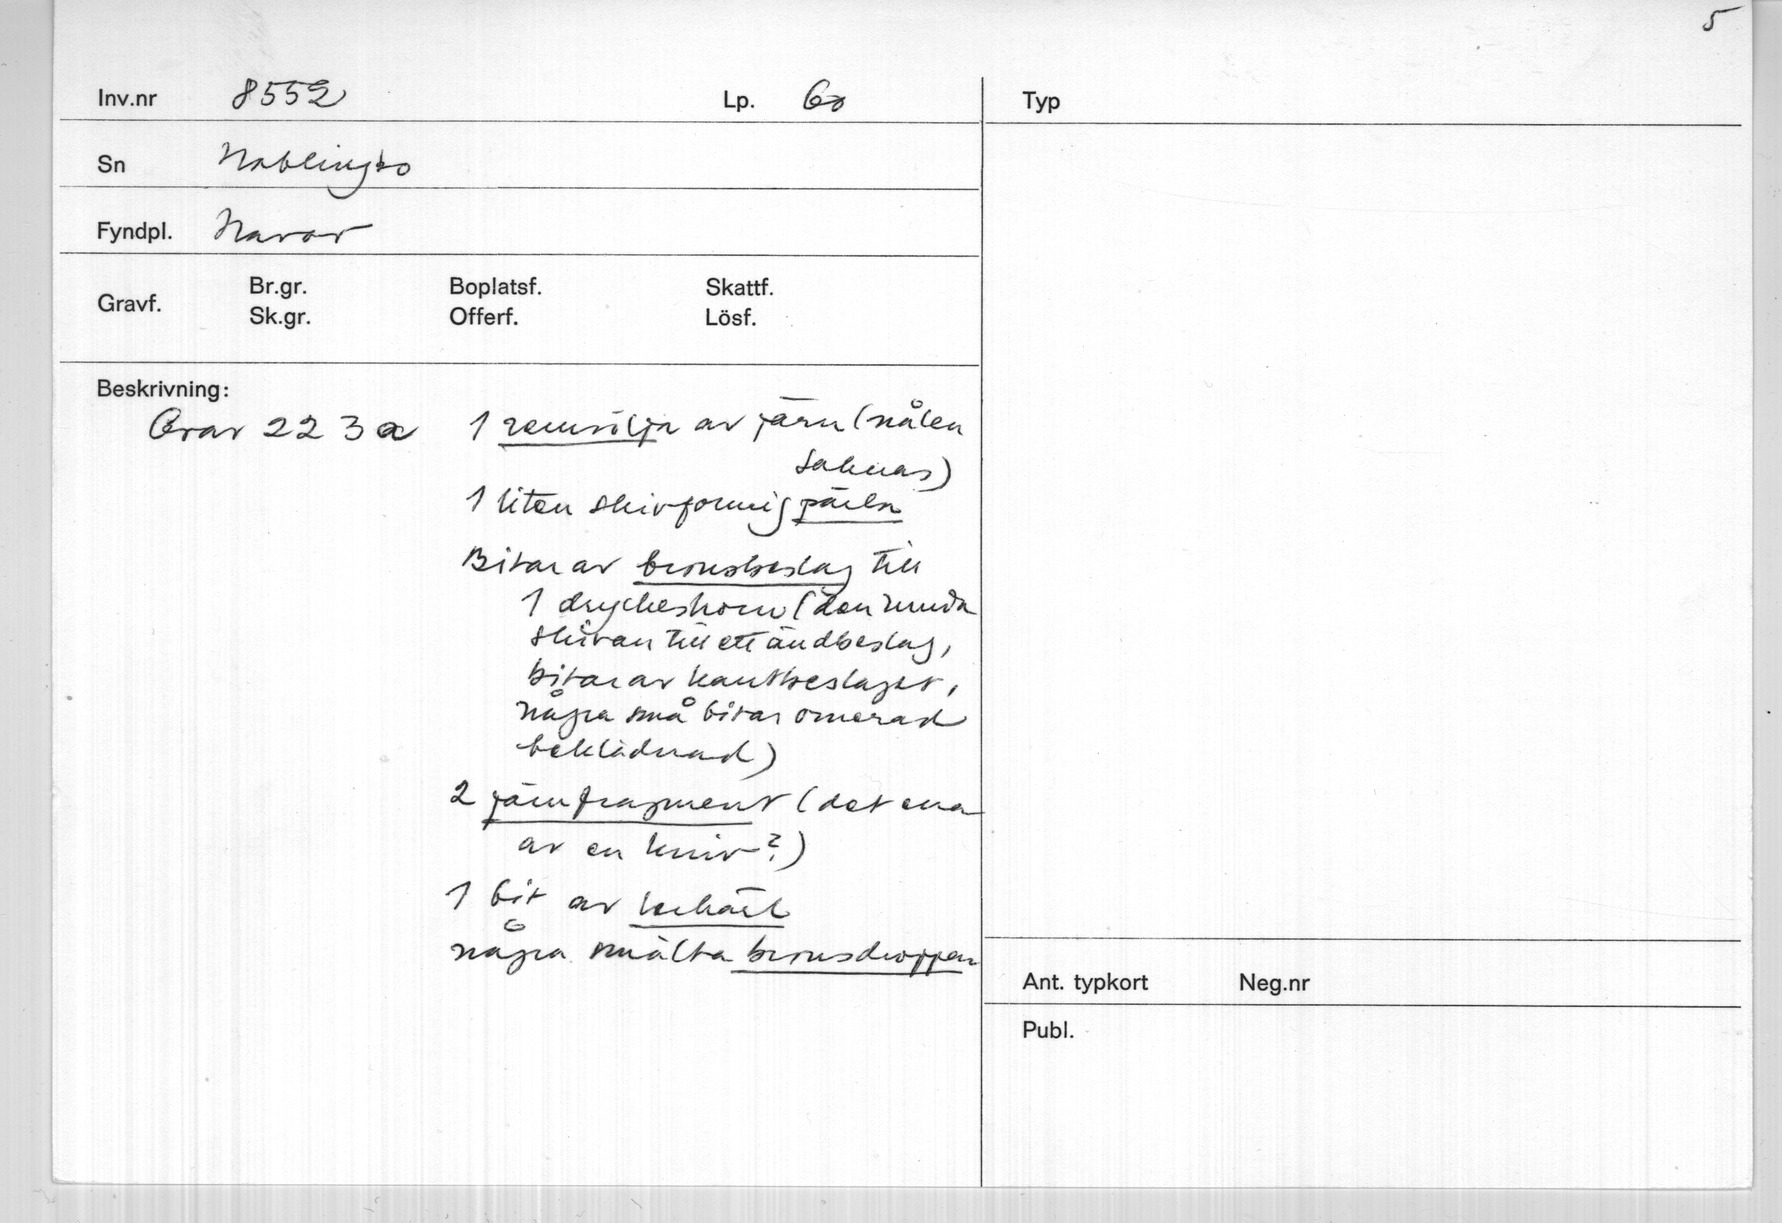 5
Inv.nr 8552 Lp. Go
Typ
Sn Hablingbo
Fyndpl. Havor
Gravf. Br.gr. Boplatsf. Skattf.
Sk.gr. Offerf. Lösf.
Beskrivning:
Grav 223a 1 remsölja av järn (nålen
saknas)
1 liten skivformig pärla
Bitar av bronsbeslag till
1 dryckeshorn (den runda
skivan till ett ändbeslag,
bitar av kantbeslaget,
några små bitar ornerad
beklädnad)
2 järnfragment (det ena
av en kniv?)
1 bit av lerkärl
några smälta bronsdroppar
Ant. typkort Neg.nr
Publ.